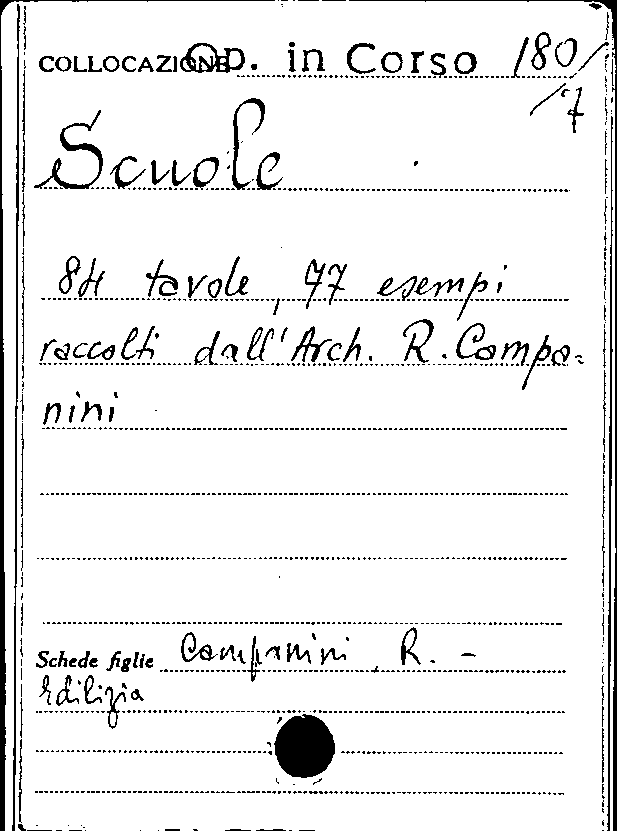 COLLOCAZIONE Op. in Corso 180/
/7
Scuole
84 tavole, 77 esempi
raccolti dall'Arch. R. Campa=
nini
Schede figlie Campanini, R. -
Edilizia